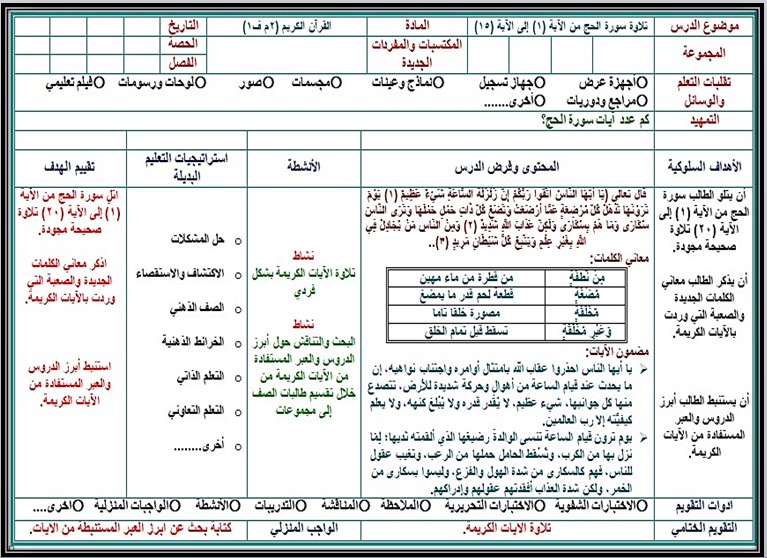 موضوع الدرس
تلاوة سورة الحج من الآية (١) إلى الآية (١٥)
المادة
القرآن الكريم (٢م ف١)
التاريخ
المجموعة
المكتسبات والمفردات الجديدة
الحصة
الفصل
تقليات التعلم والوسائل
Oأجهزة عرض Oجهاز تسجيل Oنماذج وعينات Oمجسمات Oصور Oلوحات ورسومات Oفيلم تعليمي
Oمراجع ودوريات Oأخرى.......
التمهيد
كم عدد آيات سورة الحج؟
الأهداف السلوكية
المحتوى وفرض الدرس
الأنشطة
استراتيجيات التعليم البديلة
تقييم الهدف
أن يتلو الطالب سورة
الحج من الآية (١) إلى
الآية (٢٠) تلاوة
صحيحة مجودة.
أن يذكر الطالب معاني
الكلمات الجديدة
والصعبة التي وردت
بالآيات الكريمة.
أن يستنبط الطالب أبرز
الدروس والعبر
المستفادة من الآيات
الكريمة.
قال تعالى (يَا أَيُّهَا النَّاسُ اتَّقُوا رَبَّكُمْ إِنَّ زَلْزَلَةَ السَّاعَةِ شَيْءٌ عَظِيمٌ (١) يَوْمَ
تَرَوْنَهَا تَذْهَلُ كُلُّ مُرْضِعَةٍ عَمَّا أَرْضَعَتْ وَتَضَعُ كُلُّ ذَاتِ حَمْلٍ حَمْلَهَا وَتَرَى النَّاسَ
سُكَارَى وَمَا هُم بِسُكَارَى وَلَكِنَّ عَذَابَ اللَّهِ شَدِيدٌ (٢) وَمِنَ النَّاسِ مَن يُجَادِلُ فِي
اللَّهِ بِغَيْرِ عِلْمٍ وَيَتَّبِعُ كُلَّ شَيْطَانٍ مَّرِيدٍ (٣)..
معاني الكلمات:
مِنْ نُطْفَةٍ من قطرة من ماء مهين
مُضْغَةٍ قطعة لحم قدر ما يمضغ
مُخَلَّقَةٍ مصورة خلقا تاما
وَغَيْرِ مُخَلَّقَةٍ تسقط قبل تمام الخلق
مضمون الآيات:
يا أيها الناس احذروا عقاب الله بامتثال أوامره واجتناب نواهيه، إن
ما يحدث عند قيام الساعة من أهوال وحركة شديدة للأرض، تتصدع
منها كل جوانبها، شيء عظيم، لا يُقدر قدره ولا يُبْلغ كنهه، ولا يعلم
كيفيَّته إلا رب العالمين.
يوم ترون قيام الساعة تنسى الوالدةُ رضيعَها الذي ألقمته ثديها؛ لِمَا
نزل بها من الكرب، وتُسْقط الحامل حملها من الرعب، وتغيب عقول
للناس، فهم كالسكارى من شدة الهول والفزع، وليسوا بسكارى من
الخمر، ولكن شدة العذاب أفقدتهم عقولهم وإدراكهم.
نشاط
تلاوة الآيات الكريمة بشكل
فردي
نشاط
البحث والتناقش حول أبرز
الدروس والعبر المستفادة
من الآيات الكريمة من
خلال تقسيم طالبات الصف
إلى مجموعات
o حل المشكلات
o الاكتشاف والاستقصاء
o الصف الذهني
o الخرائط الذهنية
o التعلم الذاتي
o التعلم التعاوني
o أخرى........
اتل سورة الحج من الآية
(١) إلى الآية (٢٠) تلاوة
صحيحة مجودة.
اذكر معاني الكلمات
الجديدة والصعبة التي
وردت بالآيات الكريمة.
استنبط أبرز الدروس
والعبر المستفادة من
الآيات الكريمة.
ادوات التقويم
Oالاختبارات الشفوية Oالاختبارات التحريرية Oالملاحظة Oالمناقشة Oالتدريبات Oالأنشطة Oالواجبات المنزلية Oاخرى....
التقويم الختامي
تلاوة الايات الكريمة.
الواجب المنزلي
كتابة بحث عن ابرز العبر المستنبطة من الايات.